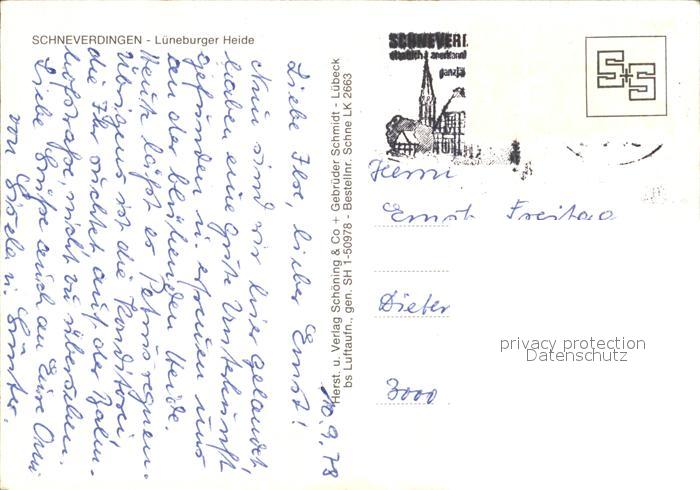 SCHNEVERDINGEN - Lüneburger Heide
10.9.78
Liebe Ilse, lieber Ernst!
Nun sind wir hier gelandet,
haben eine gute Unterkunft
gefunden u. erfreuen uns
an der blühenden Heide.
Heute läßt es Petrus regnen.
Übrigens ist die Konditorei
die Ihr suchtet auf der Bahn-
hofstraße, nicht zu übersehen.
Liebe Grüße auch an Eure Omi
von Gisela u. Günter.
Herst. u. Verlag Schöning & Co + Gebrüder Schmidt - Lübeck
bs Luftaufn., gen. SH 1-50978 - Bestellnr. Schne LK 2663
SCHNEVERD
S+S
Ernst Freitag
Dieter
3000
privacy protection
Datenschutz